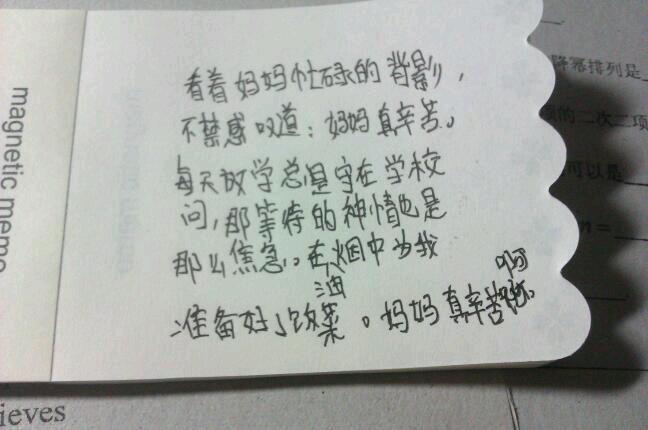 看着妈妈忙碌的背影，
不禁感叹道：妈妈真辛苦。
每天放学总是守在学校
问，那等待的神情也是
那么焦急。在油烟中为我
准备好了饭菜。妈妈真辛苦啊
magnetic memo
降幂排列是
的二次二项
可以是
n =
ieves